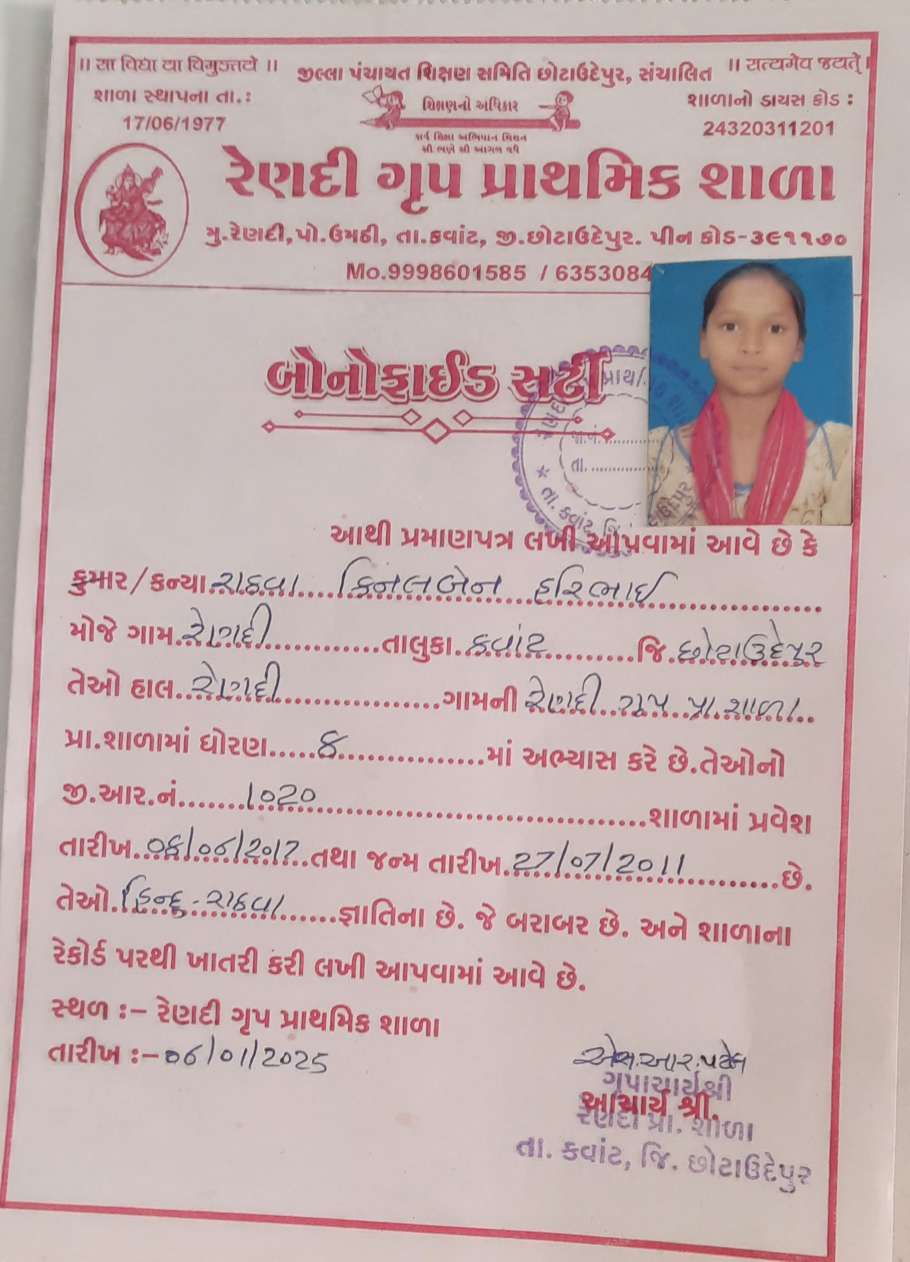 ॥ सा विद्या या विमुक्तये ॥
જીલ્લા પંચાયત શિક્ષણ સમિતિ છોટાઉદેપુર, સંચાલિત
॥ सत्यमेव जयते ॥
શાળા સ્થાપના તા.:
17/06/1977
શિક્ષણનો અધિકાર
સર્વ શિક્ષા અભિયાન મિશન
સૌ ભણે સૌ આગળ વધે
શાળાનો ડાયસ કોડ :
24320311201
રેણદી ગૃપ પ્રાથમિક શાળા
મુ.રેણદી,પો.ઉમઠી, તા.કવાંટ, જી.છોટાઉદેપુર. પીન કોડ-૩૯૧૧૭૦
Mo.9998601585 / 6353084
બોનોફાઈડ સર્ટી
તા. ..............
* તા. કવાંટ, જિ.
આથી પ્રમાણપત્ર લખી આપવામાં આવે છે કે
કુમાર/કન્યા રાઠવા કિનલબેન હરિભાઈ
મોજે ગામ. રેણદી તાલુકા. કવાંટ જિ. છોટાઉદેપુર
તેઓ હાલ. રેણદી ગામની રેણદી ગૃપ પ્રા. શાળા
પ્રા.શાળામાં ધોરણ 8 માં અભ્યાસ કરે છે.તેઓનો
જી.આર.નં. 1020 શાળામાં પ્રવેશ
તારીખ. તથા જન્મ તારીખ. 27/07/2011 છે.
તેઓ. હિન્દુ - રાઠવા જ્ઞાતિના છે. જે બરાબર છે. અને શાળાના
રેકોર્ડ પરથી ખાતરી કરી લખી આપવામાં આવે છે.
સ્થળ :- રેણદી ગૃપ પ્રાથમિક શાળા
તારીખ :- 06/01/2025
એસ.આર.પટેલ
ગૃપાચાર્યશ્રી
આચાર્ય શ્રી.
રેણદી પ્રા. શાળા
તા. કવાંટ, જિ. છોટાઉદેપુર